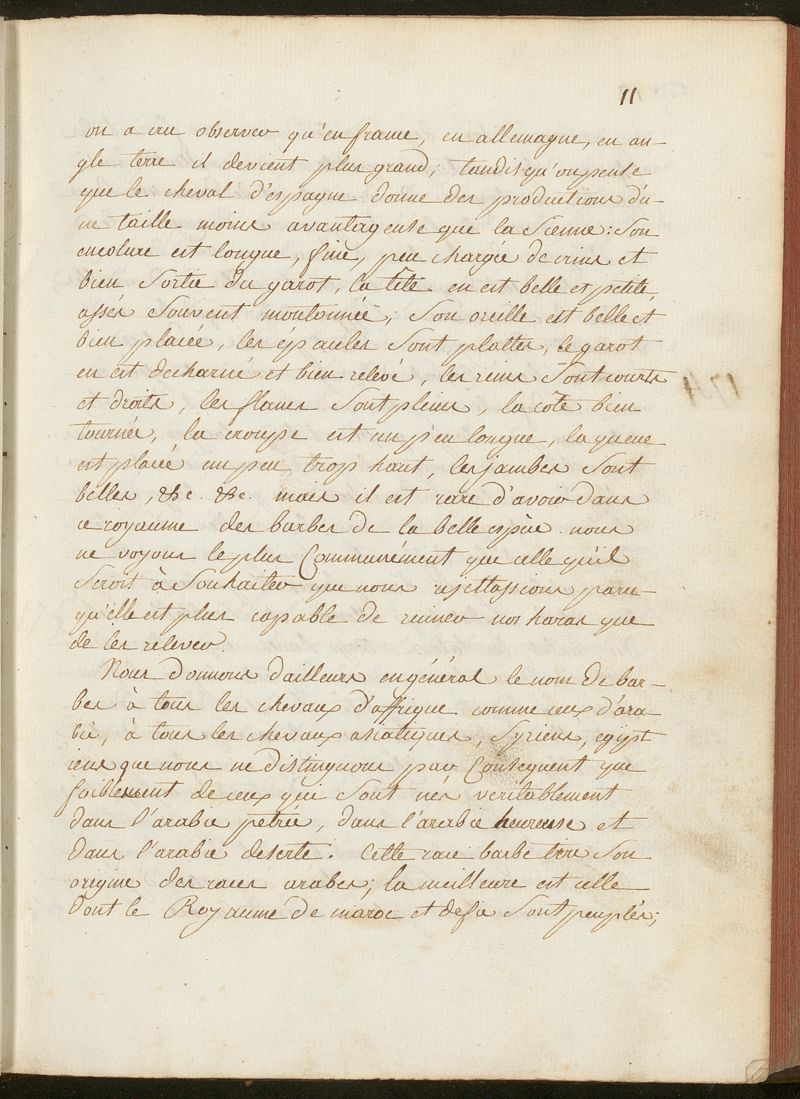 11
on a cru observer qu'en france, en allemagne, en an-
gle terre il devient plus grand, tandis qu'on pense
que le cheval d'espagne donne des productions d'u-
ne taille moins avantageuse que la Sienne: Son
encolure est longue, fine, peu chargée de crins et
bien Sortie du garot, la tête en est belle et petite,
assés Souvent moutonnée, Son oreille est belle et
bien placée, les épaules Sont plattes, le garot
en est decharné et bien relevé, les reins Sont courts
et droits, les flancs Sont pleins, la côte bien
tournée, la croupe est un peu longue, la queue
est placée un peu trop haut, les jambes Sont
belles, &c. &c. mais il est rare d'avoir dans
ce royaume des barbes de la belle espèce. nous
ne voyons le plus Communément que celle qu'il
Seroit à Souhaiter que nous rejettassions parce-
qu'elle est plus capable de ruiner nos haras que
de les relever.
Nous donnons d'ailleurs en général le nom de bar-
bes à tous les chevaux d'affrique comme ceux d'ara-
bie, à tous les chevaux asiatiques, Syriens, egypt
iens que nous ne distinguons par Consequent que
foiblement de ceux qui Sont nés veritablement
dans l'arabie petrée, dans l'arabie heureuse et
dans l'arabie deserte. Cette race barbe tire Son
origine des races arabes; la meilleure est celle
dont le Royaume de maroc et de fès Sont peuplés;